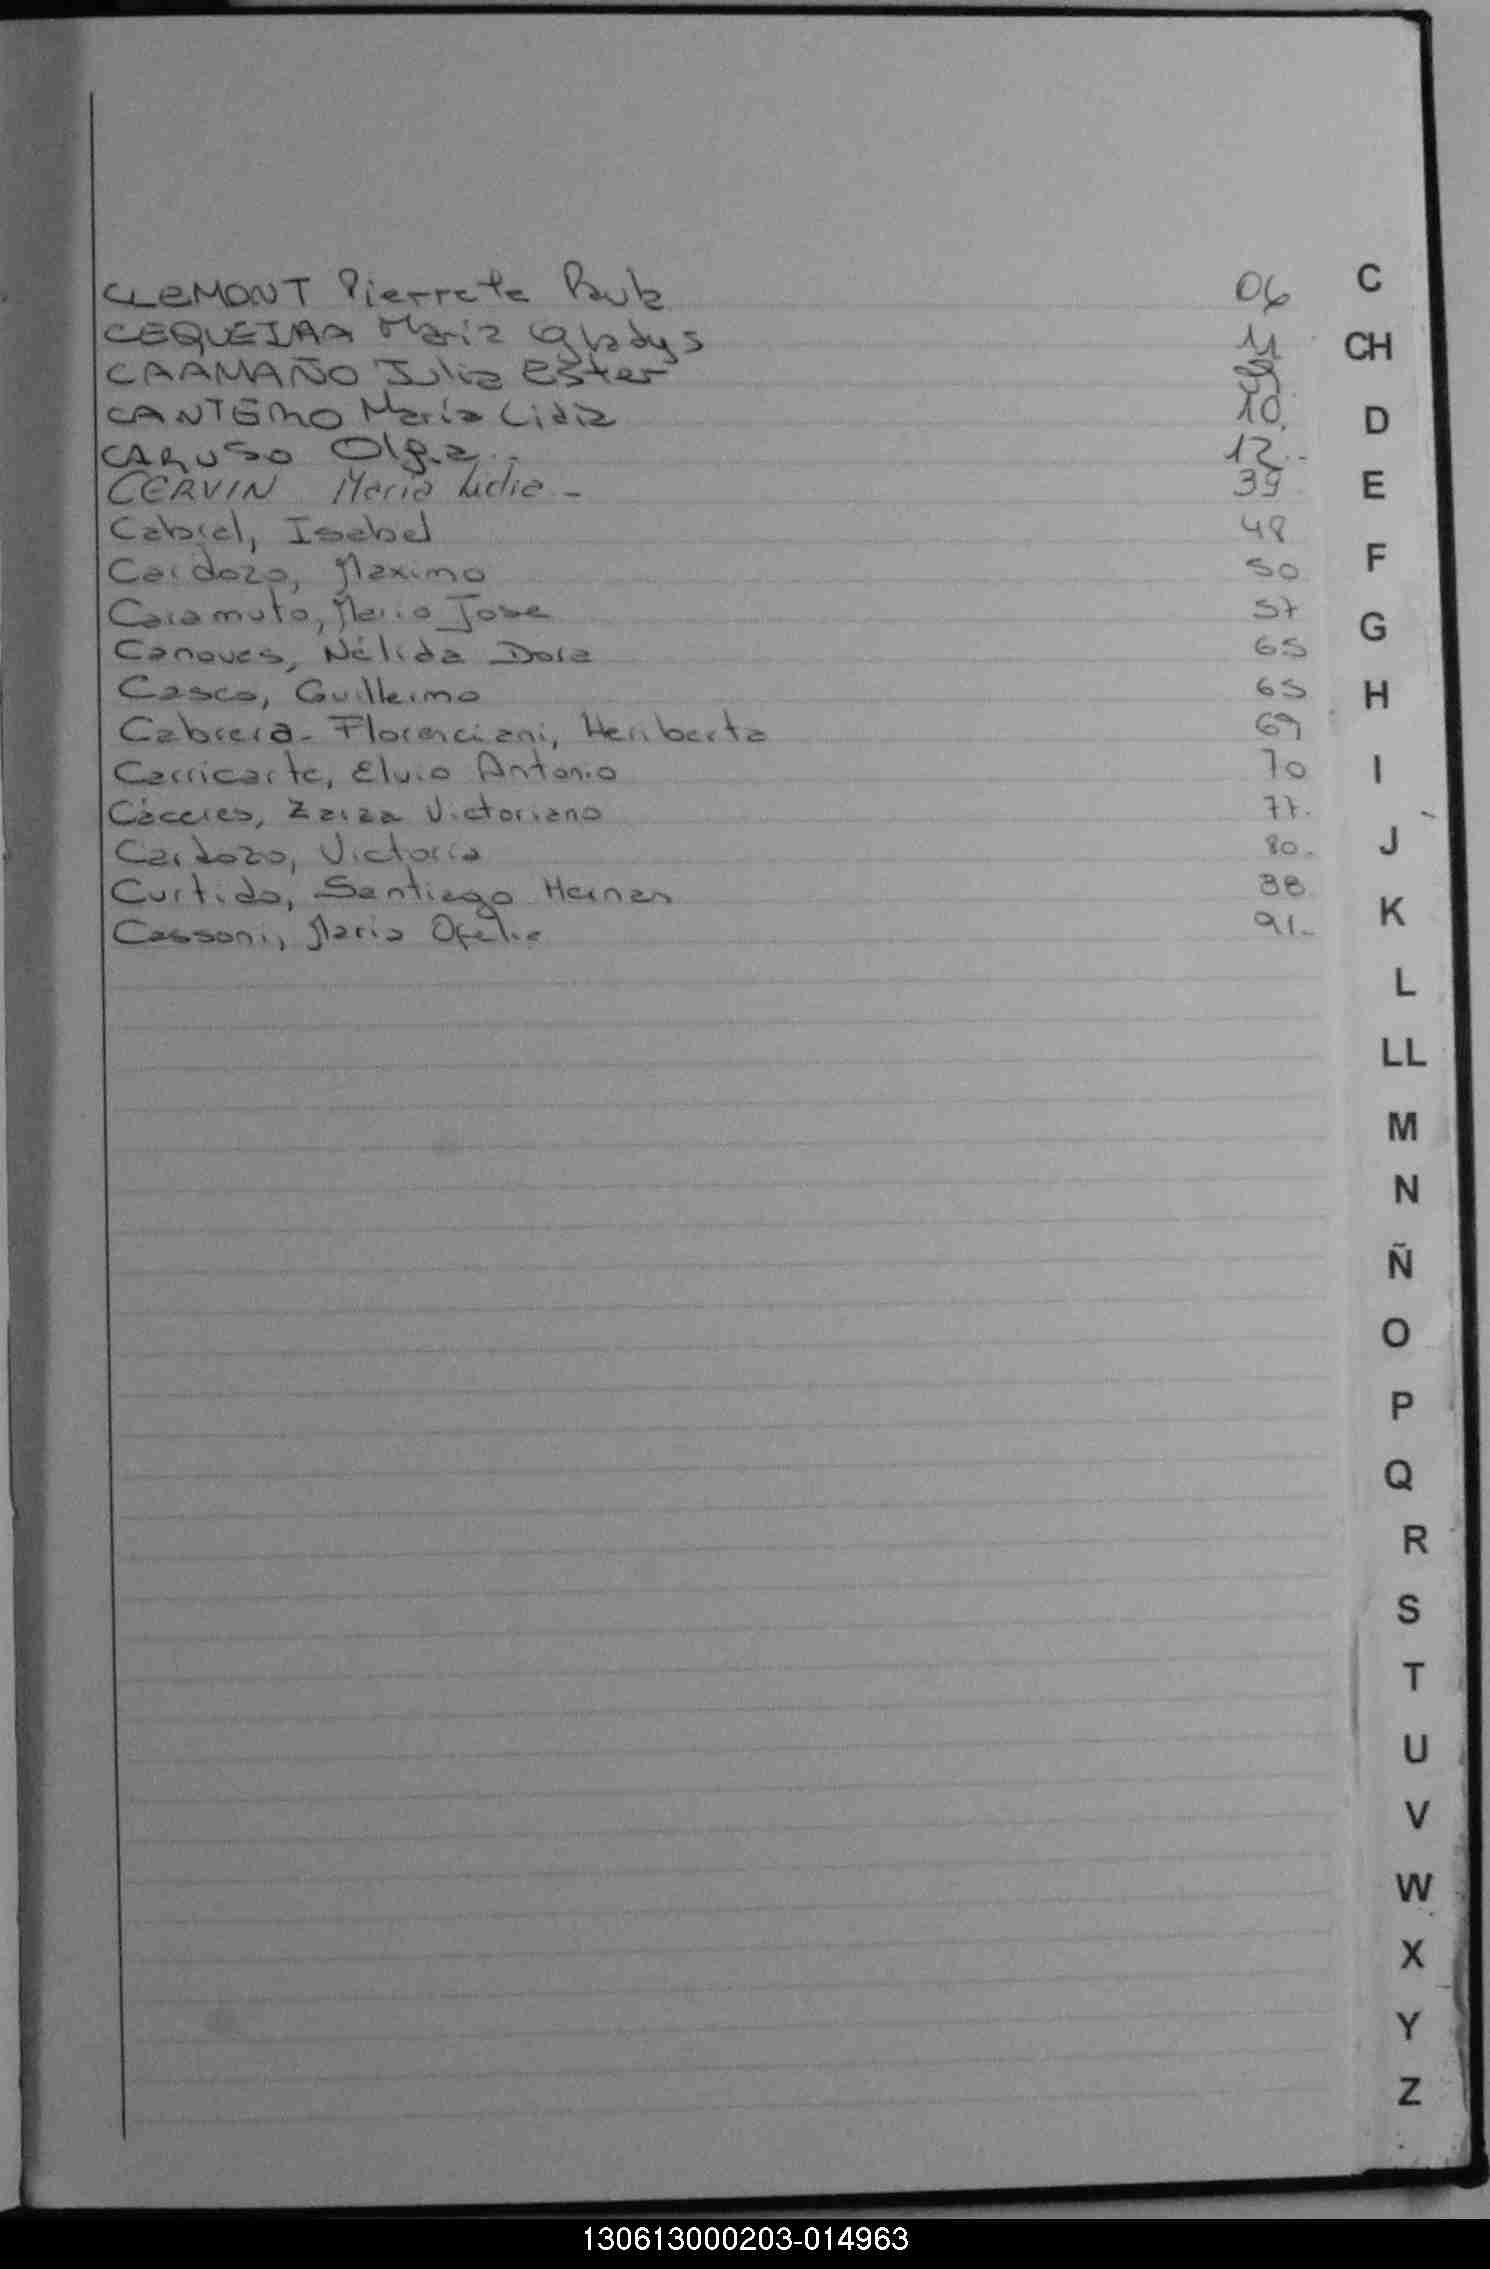 CLEMONT Pierrete Paula 06
CEQUEIRA Maria Gladys 11
CAAMAÑO Julia Ester
CANTERO María Lidia 10.
CARUSO Olga.. 12..
CERVIN María Lidia - 39
Cabiel, Isabel 48
Cardozo, Maximo 50
Caramuto, Mario Jose 57
Canoves, Nélida Dora 65
Casco, Guillermo 65
Cabrera - Florenciani, Heriberta 69
Carricarte, Elvio Antonio 70
Cáceres, Zaiza Victoriano 77.
Cardozo, Victoria 80.
Curtido, Santiago Hernan 88
Cassoni, Maria Ofelia 91.
C
CH
D
E
F
G
H
I
J
K
L
LL
M
N
Ñ
O
P
Q
R
S
T
U
V
W
X
Y
Z
130613000203-014963